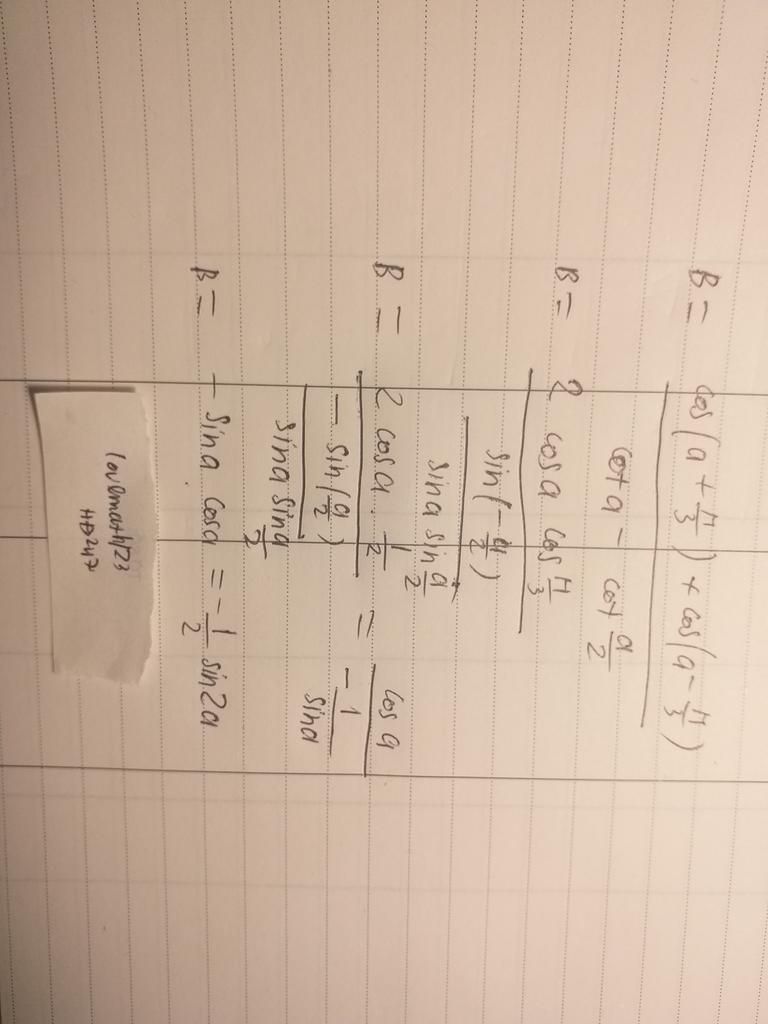 B = \frac{\cos(a + \frac{π}{3}) + \cos(a - \frac{π}{3})}{\cot a - \cot \frac{a}{2}}
B = \frac{2 \cos a \cos \frac{π}{3}}{\frac{\sin(-\frac{a}{2})}{\sin a \sin \frac{a}{2}}}
B = \frac{2 \cos a . \frac{1}{2}}{\frac{-\sin(\frac{a}{2})}{\sin a \sin \frac{a}{2}}} = \frac{\cos a}{-\frac{1}{\sin a}}
B = -\sin a \cos a = -\frac{1}{2} \sin 2a
lovemath123